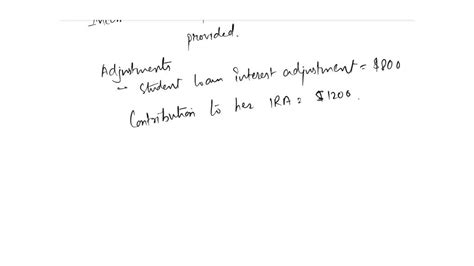 provided.
Adjustments
- Student loan interest adjustment = $800
Contribution to her IRA = $1200.